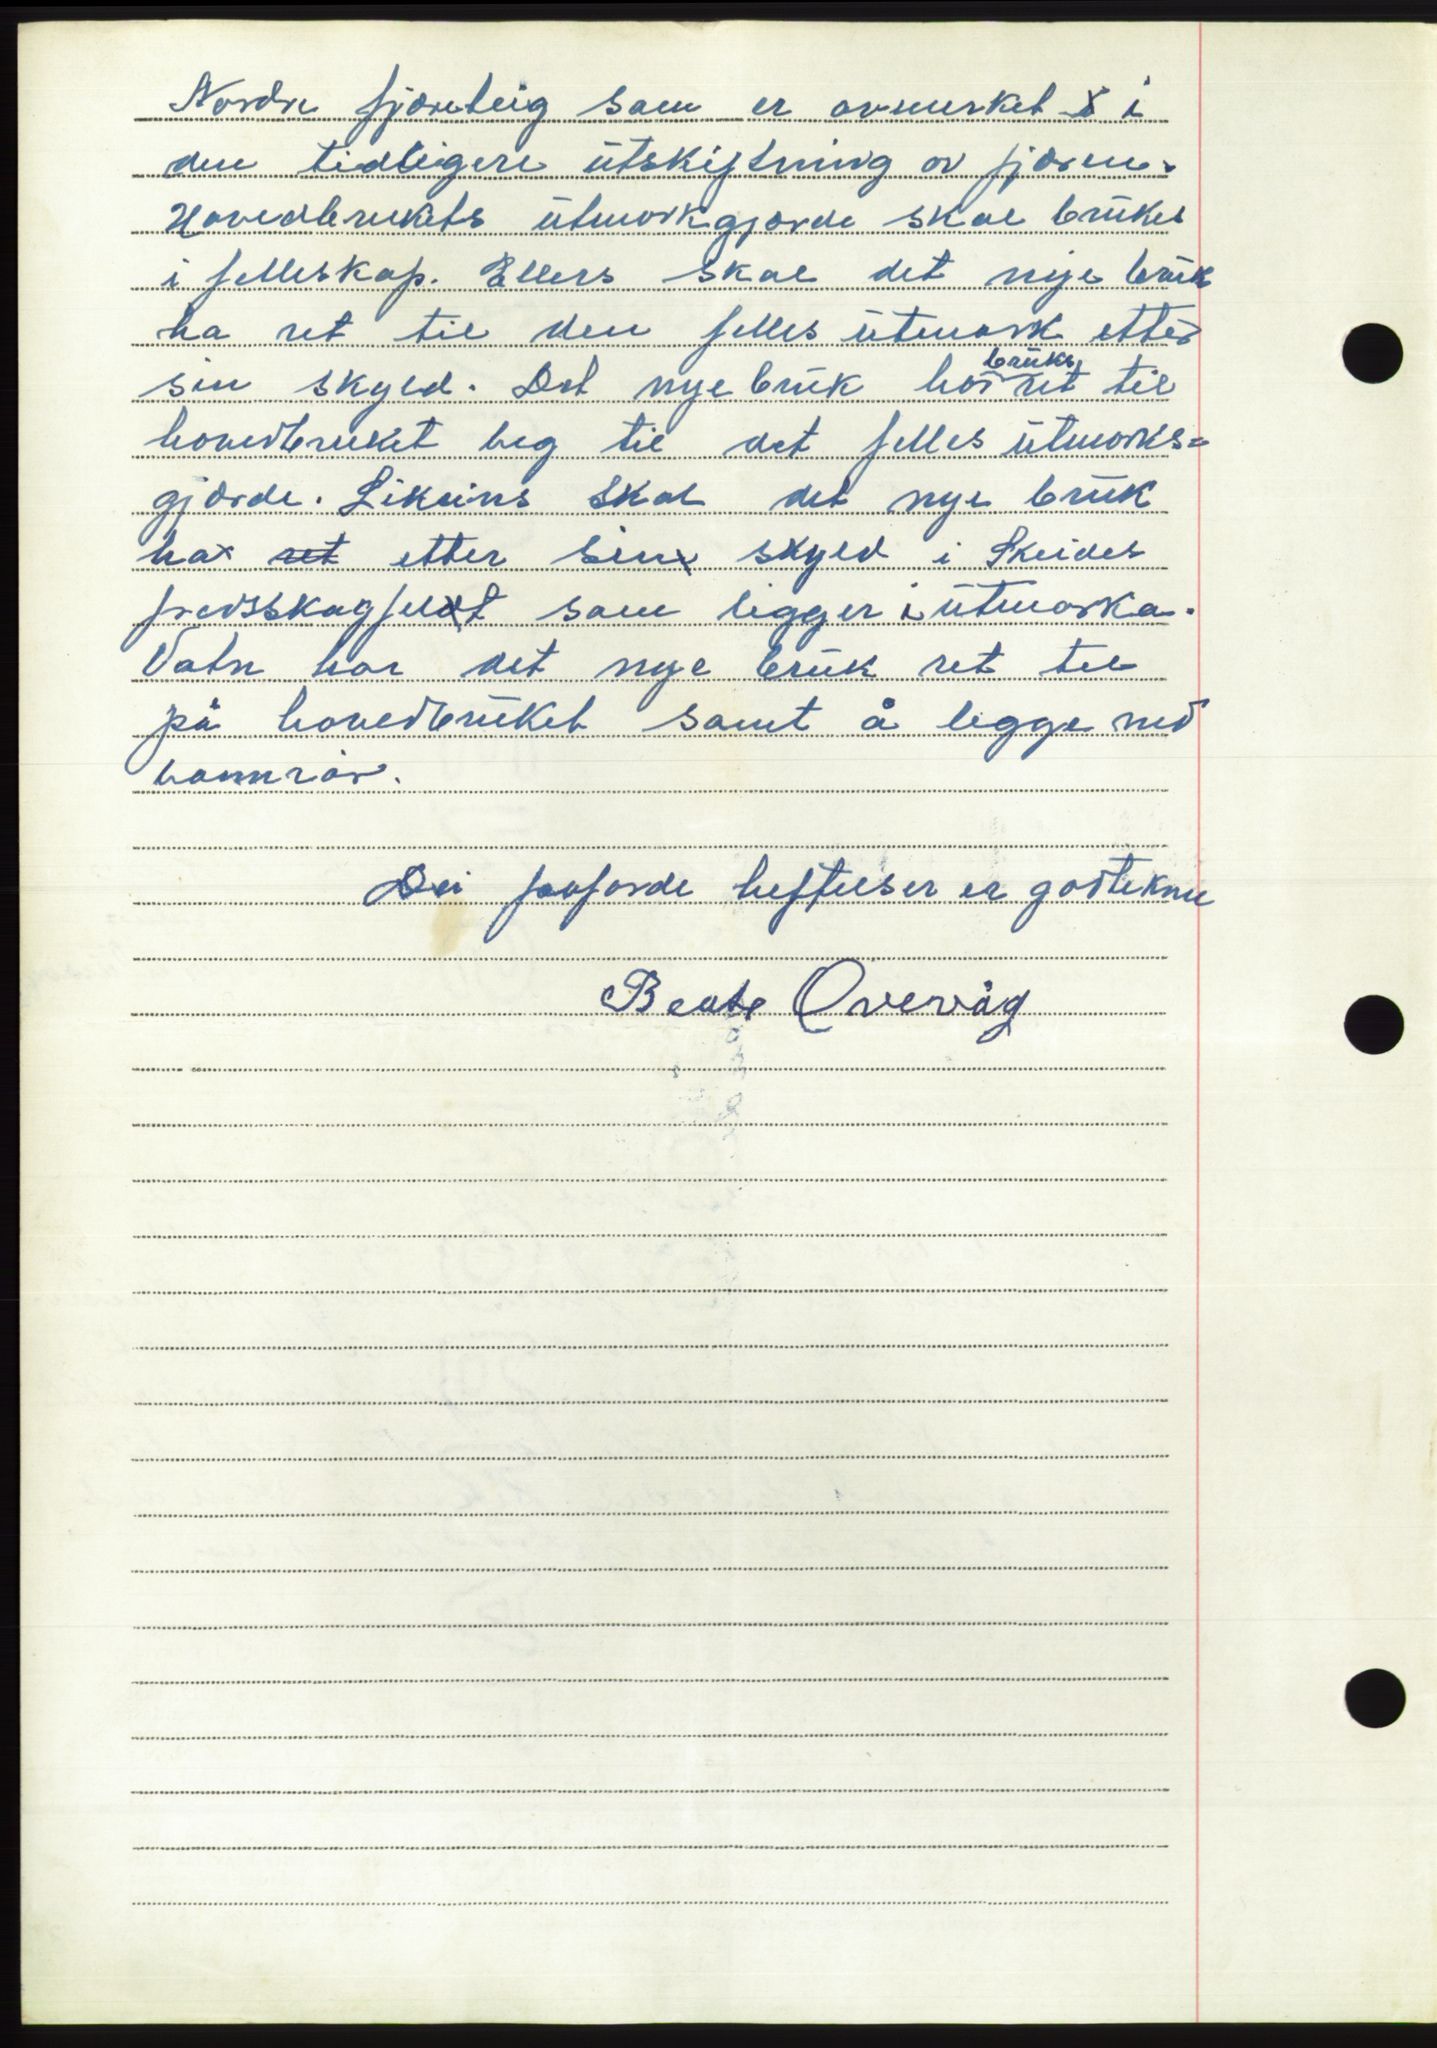 Nordre fjøreteig som er avmerket i
den tidligere ütskiftning av fjøren.
Hovedbrukets ütmarkgjerde skal brükes
i felleskap. Ellers skal det nye brük
ha ret til den felles ütmark etter
sin skyld. Det nye brük har brüks ret til
hovedbruket veg til det felles ütmarks=
gjerde. Likeins skal det nye brük
ha ret etter sin skyld i Skeides
fredsskogfelt som ligger i ütmarka.
Vatn har det nye brük ret til
på hovedbrüket samt å legge ned
vannrør.
Dei forførde heftelser er godtekne
Beate Overvåg